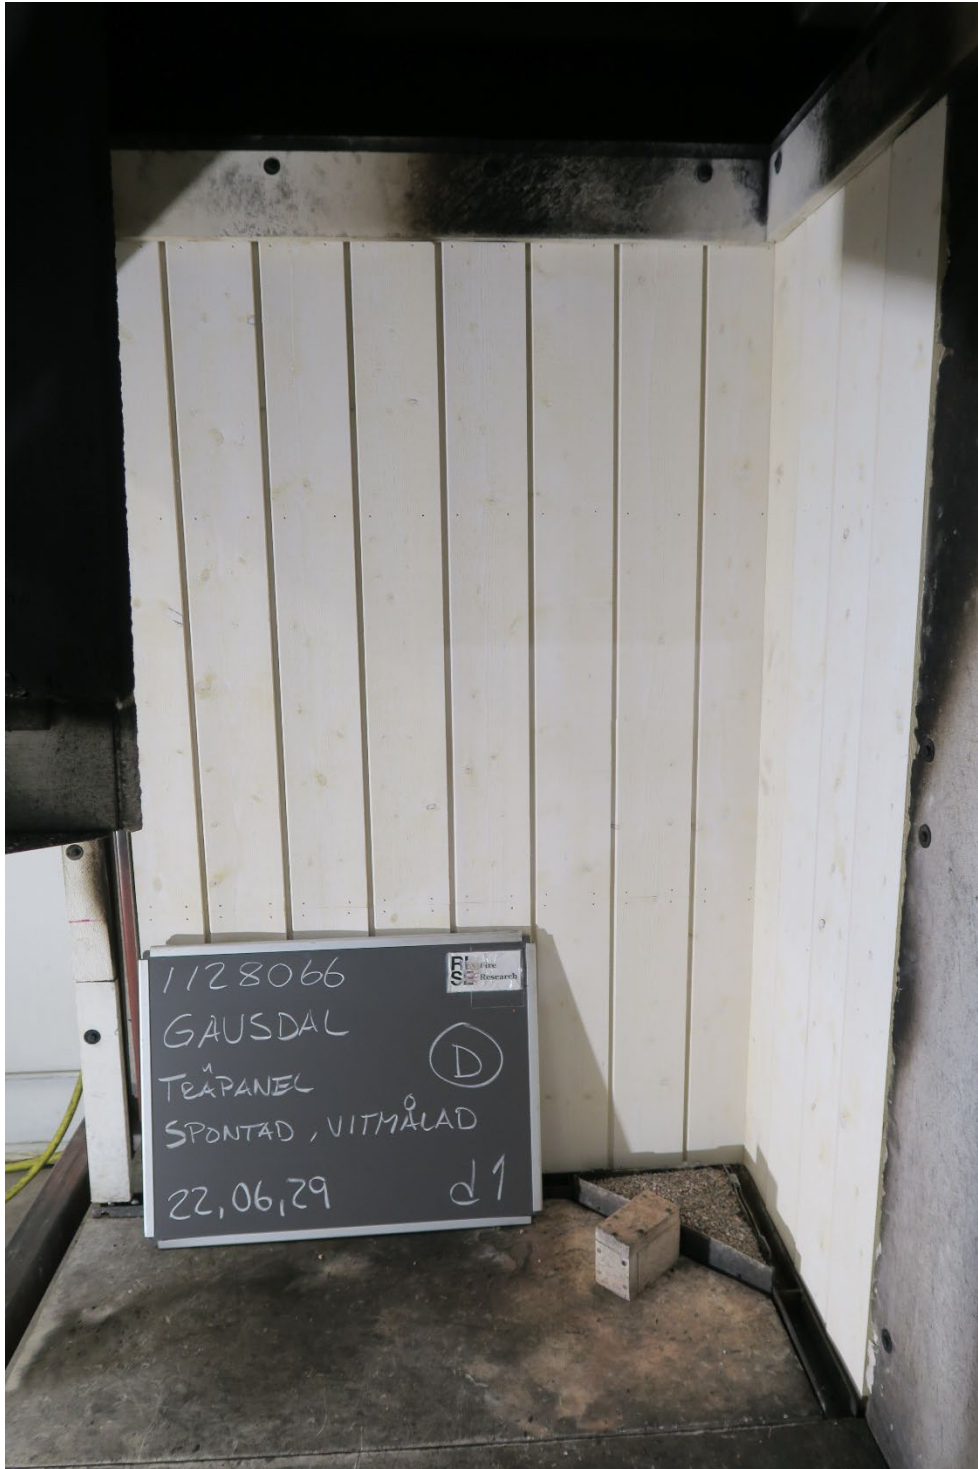 1128066
RI. Fire
SE Research
GAUSDAL
D
TRÄPANEL
SPONTAD, VITMÅLAD
22,06,29
d1